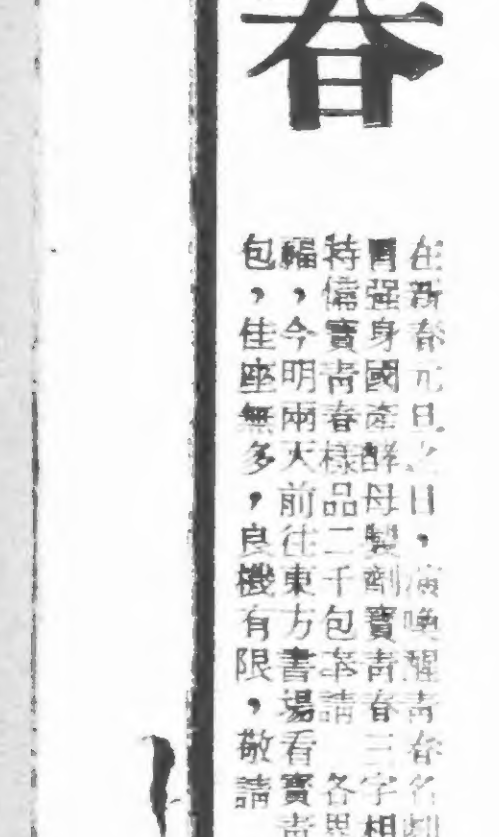 春
在新春元旦之日，演喚醒青春名劇
胃强身國產酵母製劑寶青春三字相
特備寶青春樣品二千包奉請 各界
福，今明兩天前往東方書場看寶青
包，佳座無多，良機有限，敬請